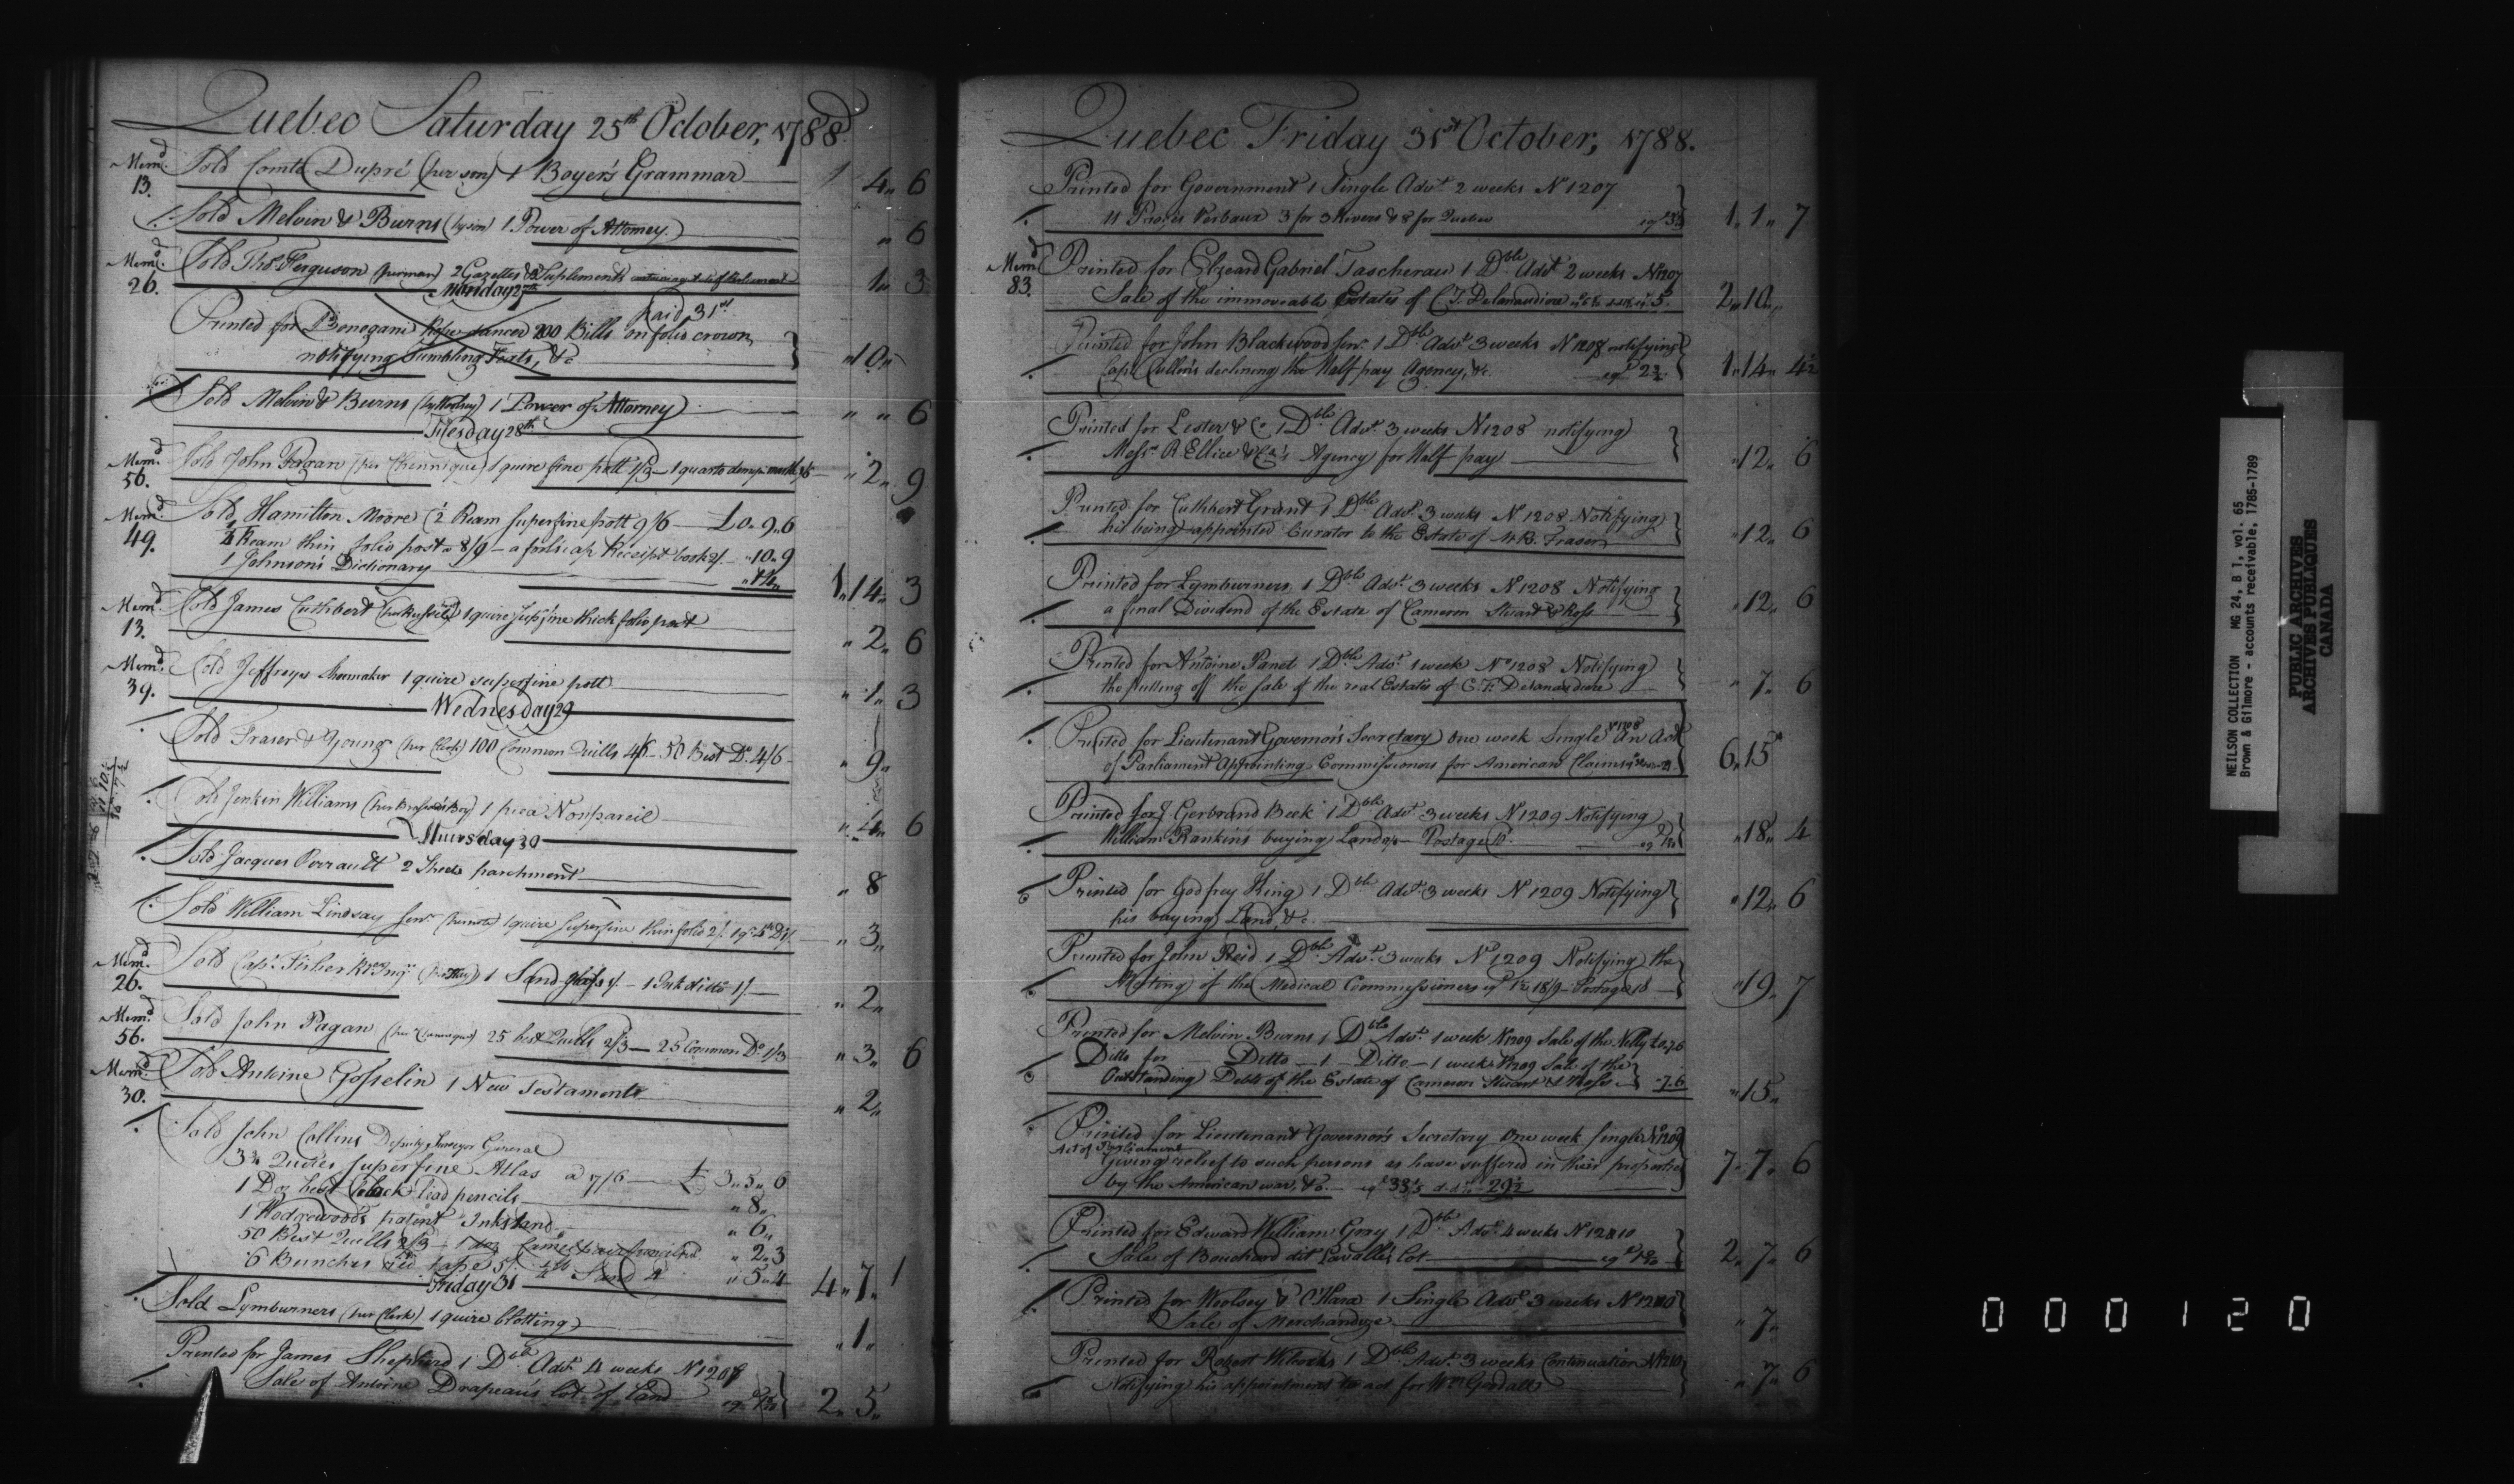 Quebec Saturday 25th October, 1788
Memd. 13. Sold Comte Dupré (per son) 1 Boyer's Grammar 4 " 6
Sold Melvin & Burns 1 Power of Attorney " 6
Memd. 26. Sold Thos. Ferguson 2 Gazettes & Suplements 1 " 3
Monday 27th
paid 31st
Printed for Donegani 200 Bills on folio crown
notifying Tumbling Feats, &c " 10 "
Sold Melvin & Burns 1 Power of Attorney " " 6
Tuesday 28th
Memd. 56. Sold John Pagan 1 quire fine pott 1/3 — 1 quarto " 2 " 9
Memd. 49. Sold Hamilton Moore ½ Ream superfine pott 9/6 — £0 " 9 " 6
Ream thin folio post 8/9 — a foolscap Receipt book 2/. " 10 " 9
1 Johnson's Dictionary 1 " 14 " 3
Memd. 13. Sold James Cuthbert 1 quire supfine thick folio post " 2 " 6
Memd. 39. Sold Jeffreys Shoemaker 1 quire superfine pott " 1 " 3
Wednesday 29
Sold Fraser & Young (per Clerk) 100 Common Quills 4/6 — 50 Best Do. 4/6 " 9 "
Sold Jenkin Williams 1 piece Nonpareil " 4 " 6
Thursday 30
Sold Jacques Perrault 2 Sheets parchment " 8
Sold William Lindsay Senr. 1 quire superfine thin folio 2/. " 3 "
Memd. 26. Sold Capt. Fisher 1 Sand glass 1/. — 1 Ink ditto 1/. " 2 "
Memd. 56. Sold John Pagan 25 best Quills 2/3 — 25 Common Do. 1/3 " 3 " 6
Memd. 30. Sold Antoine Gosselin 1 New Testament " 2 "
Sold John Collins Deputy Surveyor General
Quires superfine Atlas a 7/6 — £ 3 " 5 " 6
1 Doz best black lead pencils " 8 "
1 Wedgewood's patent Inkstand " 6 "
50 Best Quills " 2 " 3
6 Bunches red tape Sand " 5 " 4 4 " 7 " 1
Friday 31
Sold Lymburners (per Clerk) 1 quire blotting " 1 "
Printed for James Shepherd 1 Dble Advt. 4 weeks No 1207
Sale of Antoine Drapeau's lot of land 2 " 5 "
Quebec Friday 31st October, 1788.
Printed for Government 1 Single Advt. 2 weeks No 1207
11 Procès Verbaux 3 for 3 Rivers & 8 for Quebec 1 " 1 " 7
Memd 83. Printed for Elzeard Gabriel Taschereau 1 Dble Advt 2 weeks No 1207
Sale of the immoveable Estates of C. T. Delanaudiere 2 " 10 "
Printed for John Blackwood Senr. 1 Dble Advt. 3 weeks No 1208 notifying
Capt. Cullen's declining the Half pay Agency, &c. 1 " 14 " 4½
Printed for Lester & Co 1 Dble Advt. 3 weeks No 1208 notifying
Messrs. R. Ellice & Co's Agency for Half pay " 12 " 6
Printed for Cuthbert Grant 1 Dble Advt. 3 weeks No 1208 Notifying
his being appointed Curator to the Estate of Fraser " 12 " 6
Printed for Lymburners 1 Dble Advt. 3 weeks No 1208 Notifying
a final Dividend of the Estate of Cameron Stuart & Ross " 12 " 6
Printed for Antoine Panet 1 Dble Advt. 1 week No 1208 Notifying
the putting off the sale of the real Estates of C. T. Delanaudiere " 7 " 6
Printed for Lieutenant Governor's Secretary One week Single No 1208 An Act
of Parliament Appointing Commissioners for American Claims 6 " 15 "
Printed for J Gerbrand Beek 1 Dble Advt. 3 weeks No 1209 Notifying
William Rankin's buying Land — Postage " 18 " 4
Printed for Godfrey King 1 Dble Advt. 3 weeks No 1209 Notifying
his buying Land, &c. " 12 " 6
Printed for John Reid 1 Dble Advt. 3 weeks No 1209 Notifying the
Meeting of the Medical Commissioners 18/9 — Postage 10 " 19 " 7
Printed for Melvin Burns 1 Dble Advt. 1 week No 1209 Sale of the Nelly £0.7.6
Ditto for Ditto — 1 — Ditto — 1 week No 1209 Sale of the
Outstanding Debts of the Estate of Cameron Stuart & Ross 7.6 " 15 "
Printed for Lieutenant Governor's Secretary One week Single No 1209
Act of Parliament
Giving relief to such persons as have suffered in their properties
by the American war, &c. 7 " 7 " 6
Printed for Edward William Gray 1 Dble Advt. 4 weeks No 1210
Sale of Bouchard dit Lavallé's lot 2 " 7 " 6
Printed for Woolsey & O'Hara 1 Single Advt. 3 weeks No 1210
Sale of Merchandize " 7 "
Printed for Robert Wilcocks 1 Dble Advt. 3 weeks Continuation No 1210
Notifying his appointment to act for Wm Goodall " 7 " 6
NEILSON COLLECTION MG 24, B 1, vol. 65
Brown & Gilmore - accounts receivable, 1785-1789
PUBLIC ARCHIVES
ARCHIVES PUBLIQUES
CANADA
000120